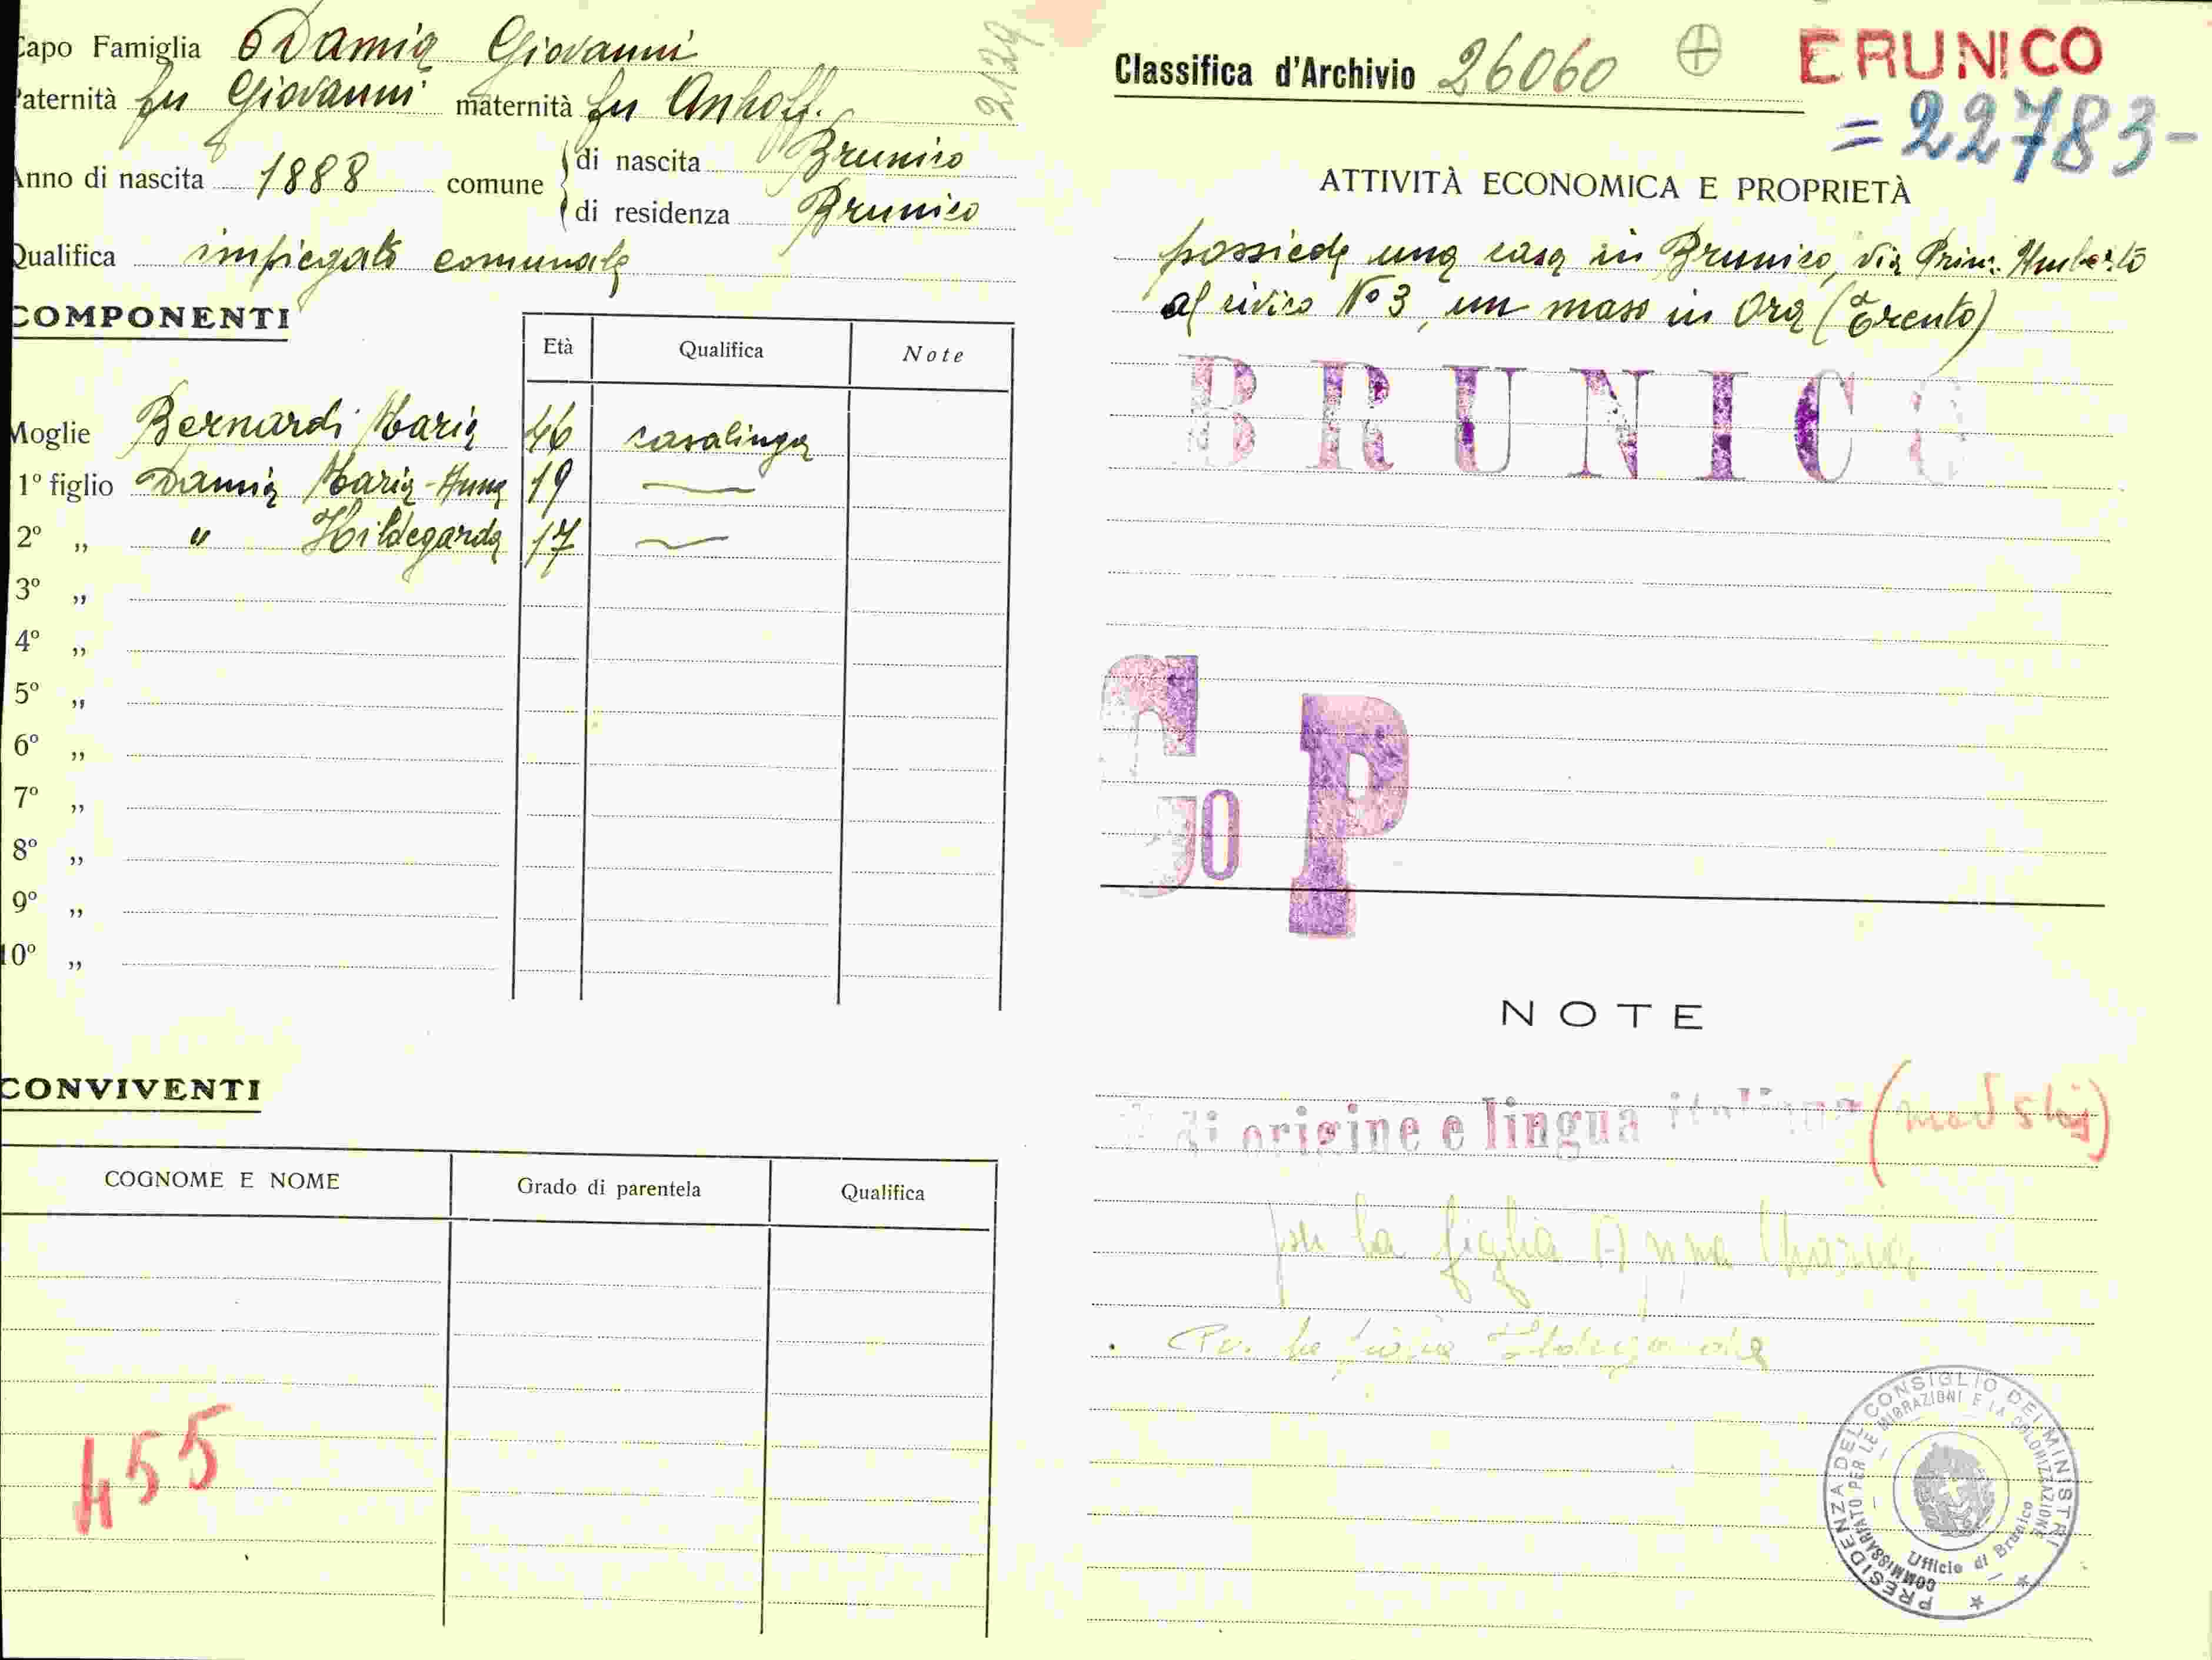 Capo Famiglia Damia Giovanni
Paternità fu Giovanni maternità fu Anhoff.
Anno di nascita 1888 comune di nascita Brunico
di residenza Brunico
Qualifica impiegato comunale
COMPONENTI
Età Qualifica Note
Moglie Bernardi Maria 46 casalinga
1º figlio Damia Maria-Anna 19 —
2º „ " Hildegarda 17 —
3º „
4º „
5º „
6º „
7º „
8º „
9º „
10º „
CONVIVENTI
COGNOME E NOME Grado di parentela Qualifica
455
21329
Classifica d'Archivio 26060
BRUNICO
=22783-
ATTIVITÀ ECONOMICA E PROPRIETÀ
possiede una casa in Brunico, via Princ. Umberto
al civico Nº 3, un maso in Ora (Trento)
BRUNICO
P
NOTE
di origine e lingua italiana
per la figlia Anna Maria
PRESIDENZA DEL CONSIGLIO DEI MINISTRI
COMMISSARIATO PER LE MIGRAZIONI E LA COLONIZZAZIONE
Ufficio di Brunico